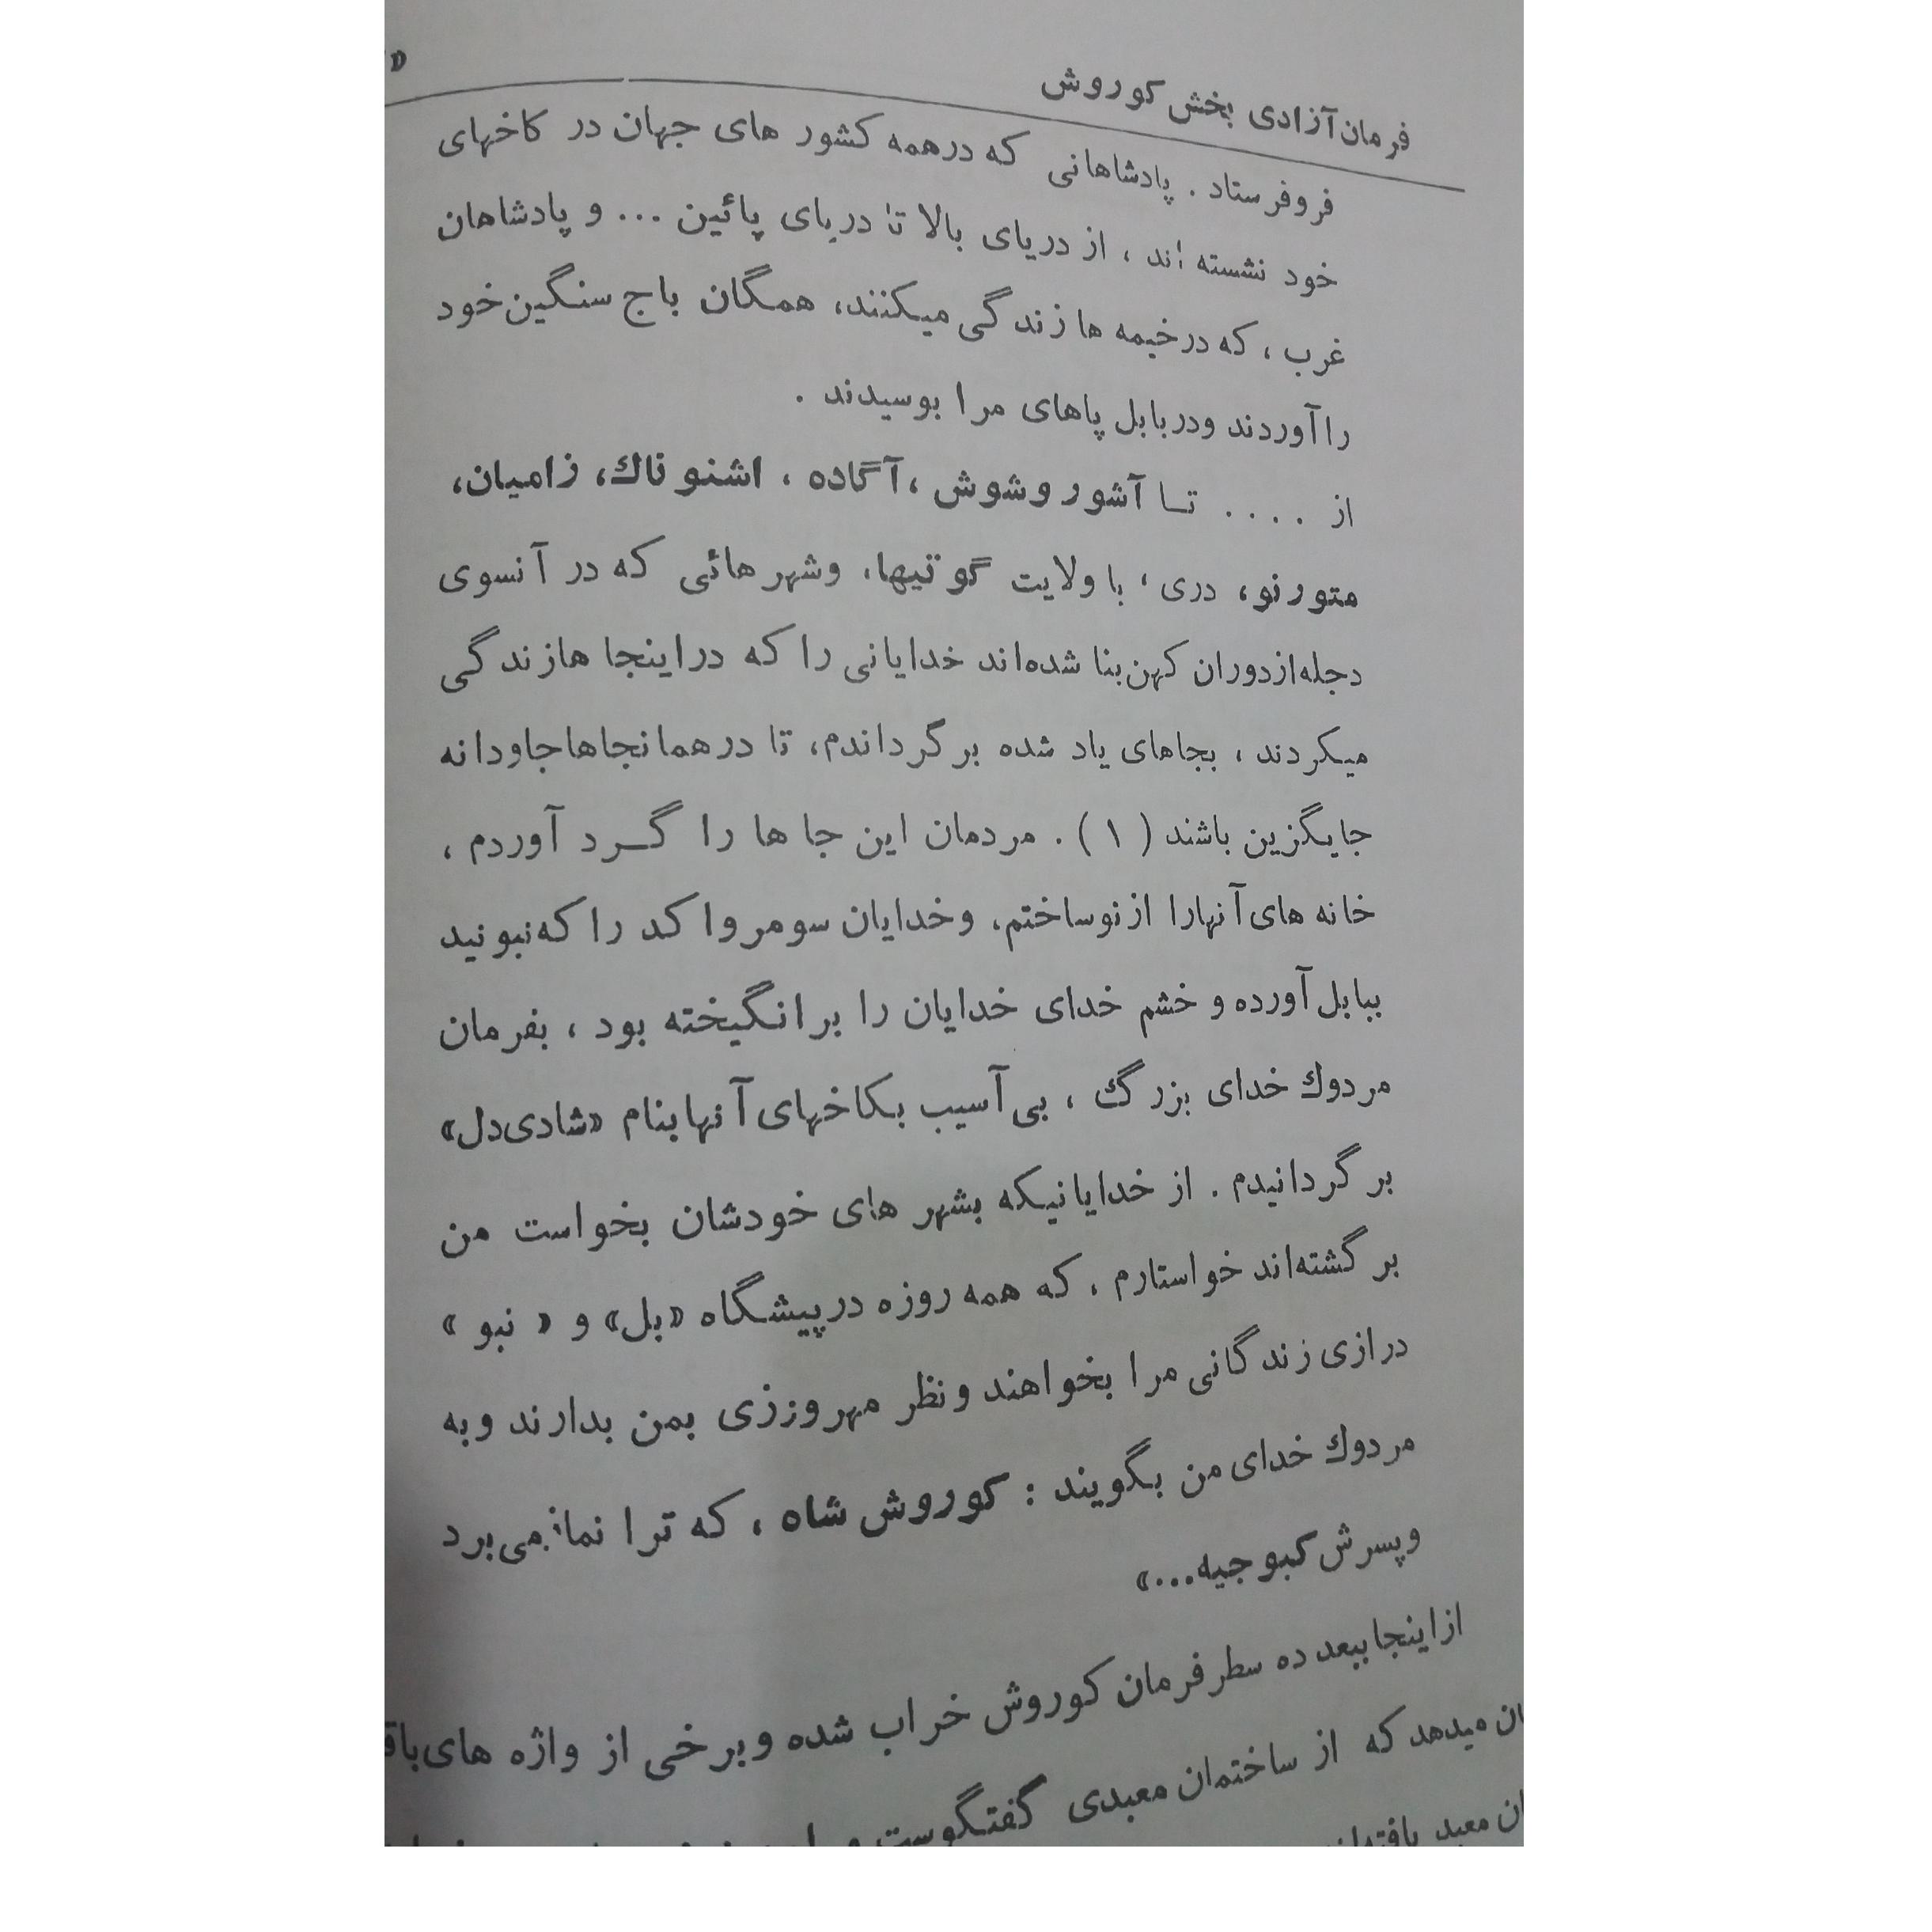 فرمان آزادی بخش کوروش
فروفرستاد . پادشاهانی که درهمه کشور های جهان در کاخهای
خود نشسته اند ، از دریای بالا تا دریای پائین ... و پادشاهان
غرب ، که درخیمه ها زندگی میکنند، همگان باج سنگین خود
را آوردند ودربابل پاهای مرا بوسیدند .
از .... تا آشور وشوش ، آگاده ، اشنو ناك، زامیان،
متورنو، دری ، با ولایت گوتیها، وشهرهائی که در آنسوی
دجله از دوران کهن بنا شده‌اند خدایانی را که دراینجا ها زندگی
میکردند ، بجاهای یاد شده برگرداندم، تا درهمانجاها جاودانه
جایگزین باشند (۱) . مردمان این جا ها را گرد آوردم ،
خانه های آنهارا ازنو ساختم، وخدایان سومر واکد را که نبونید
ببابل آورده و خشم خدای خدایان را برانگیخته بود ، بفرمان
مردوك خدای بزرگ ، بی آسیب بکاخهای آنها بنام «شادی دل»
برگردانیدم . از خدایانیکه بشهر های خودشان بخواست من
برگشته‌اند خواستارم ، که همه روزه درپیشگاه «بل» و « نبو »
درازی زندگانی مرا بخواهند ونظر مهروزری بمن بدارند وبه
مردوك خدای من بگویند : کوروش شاه ، که ترا نماز می‌برد
وپسرش کبوجیه...»
ازاینجا ببعد ده سطر فرمان کوروش خراب شده وبرخی از واژه های
میدهد که از ساختمان معبدی گفتگوست
معبد